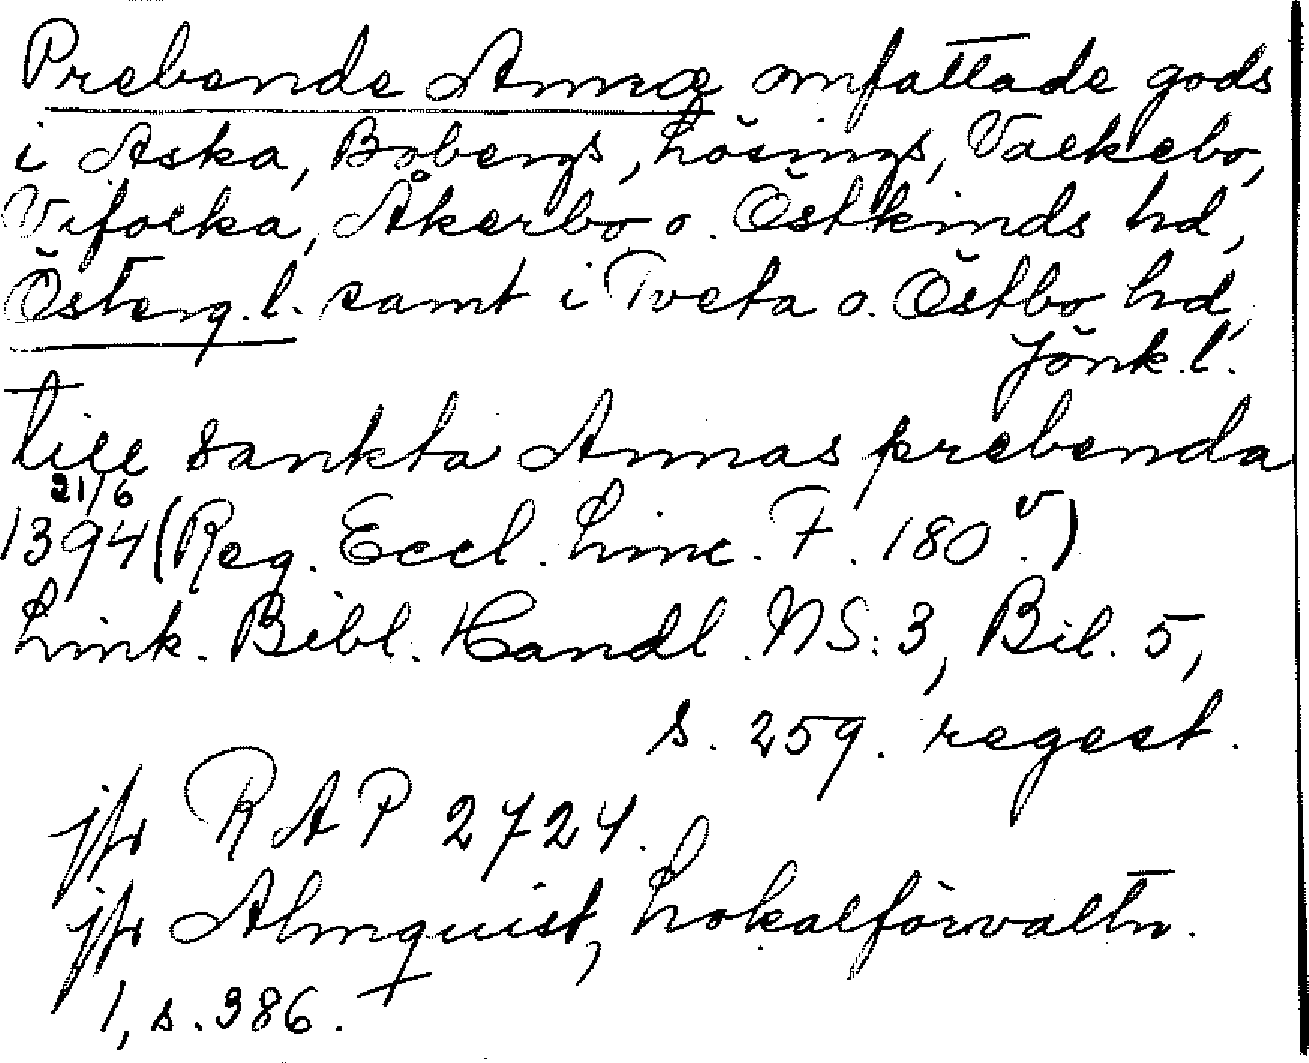 Prebende Annæ omfattade gods
i Aska, Bobergs, Lösings, Valkebo,
Vifolka, Åkerbo o. Östkinds hd,
Österg.l. samt i Tveta o. Östbo hd,
Jönk.l.
till sankta Annas prebenda
21/6
1394 (Reg. Eccl. Linc. F. 180 v.)
Link. Bibl. Handl. NS: 3, Bil. 5,
s. 259. regest.
jfr RAP 2724.
jfr Almquist, Lokalförvaltn.
1, s. 386.